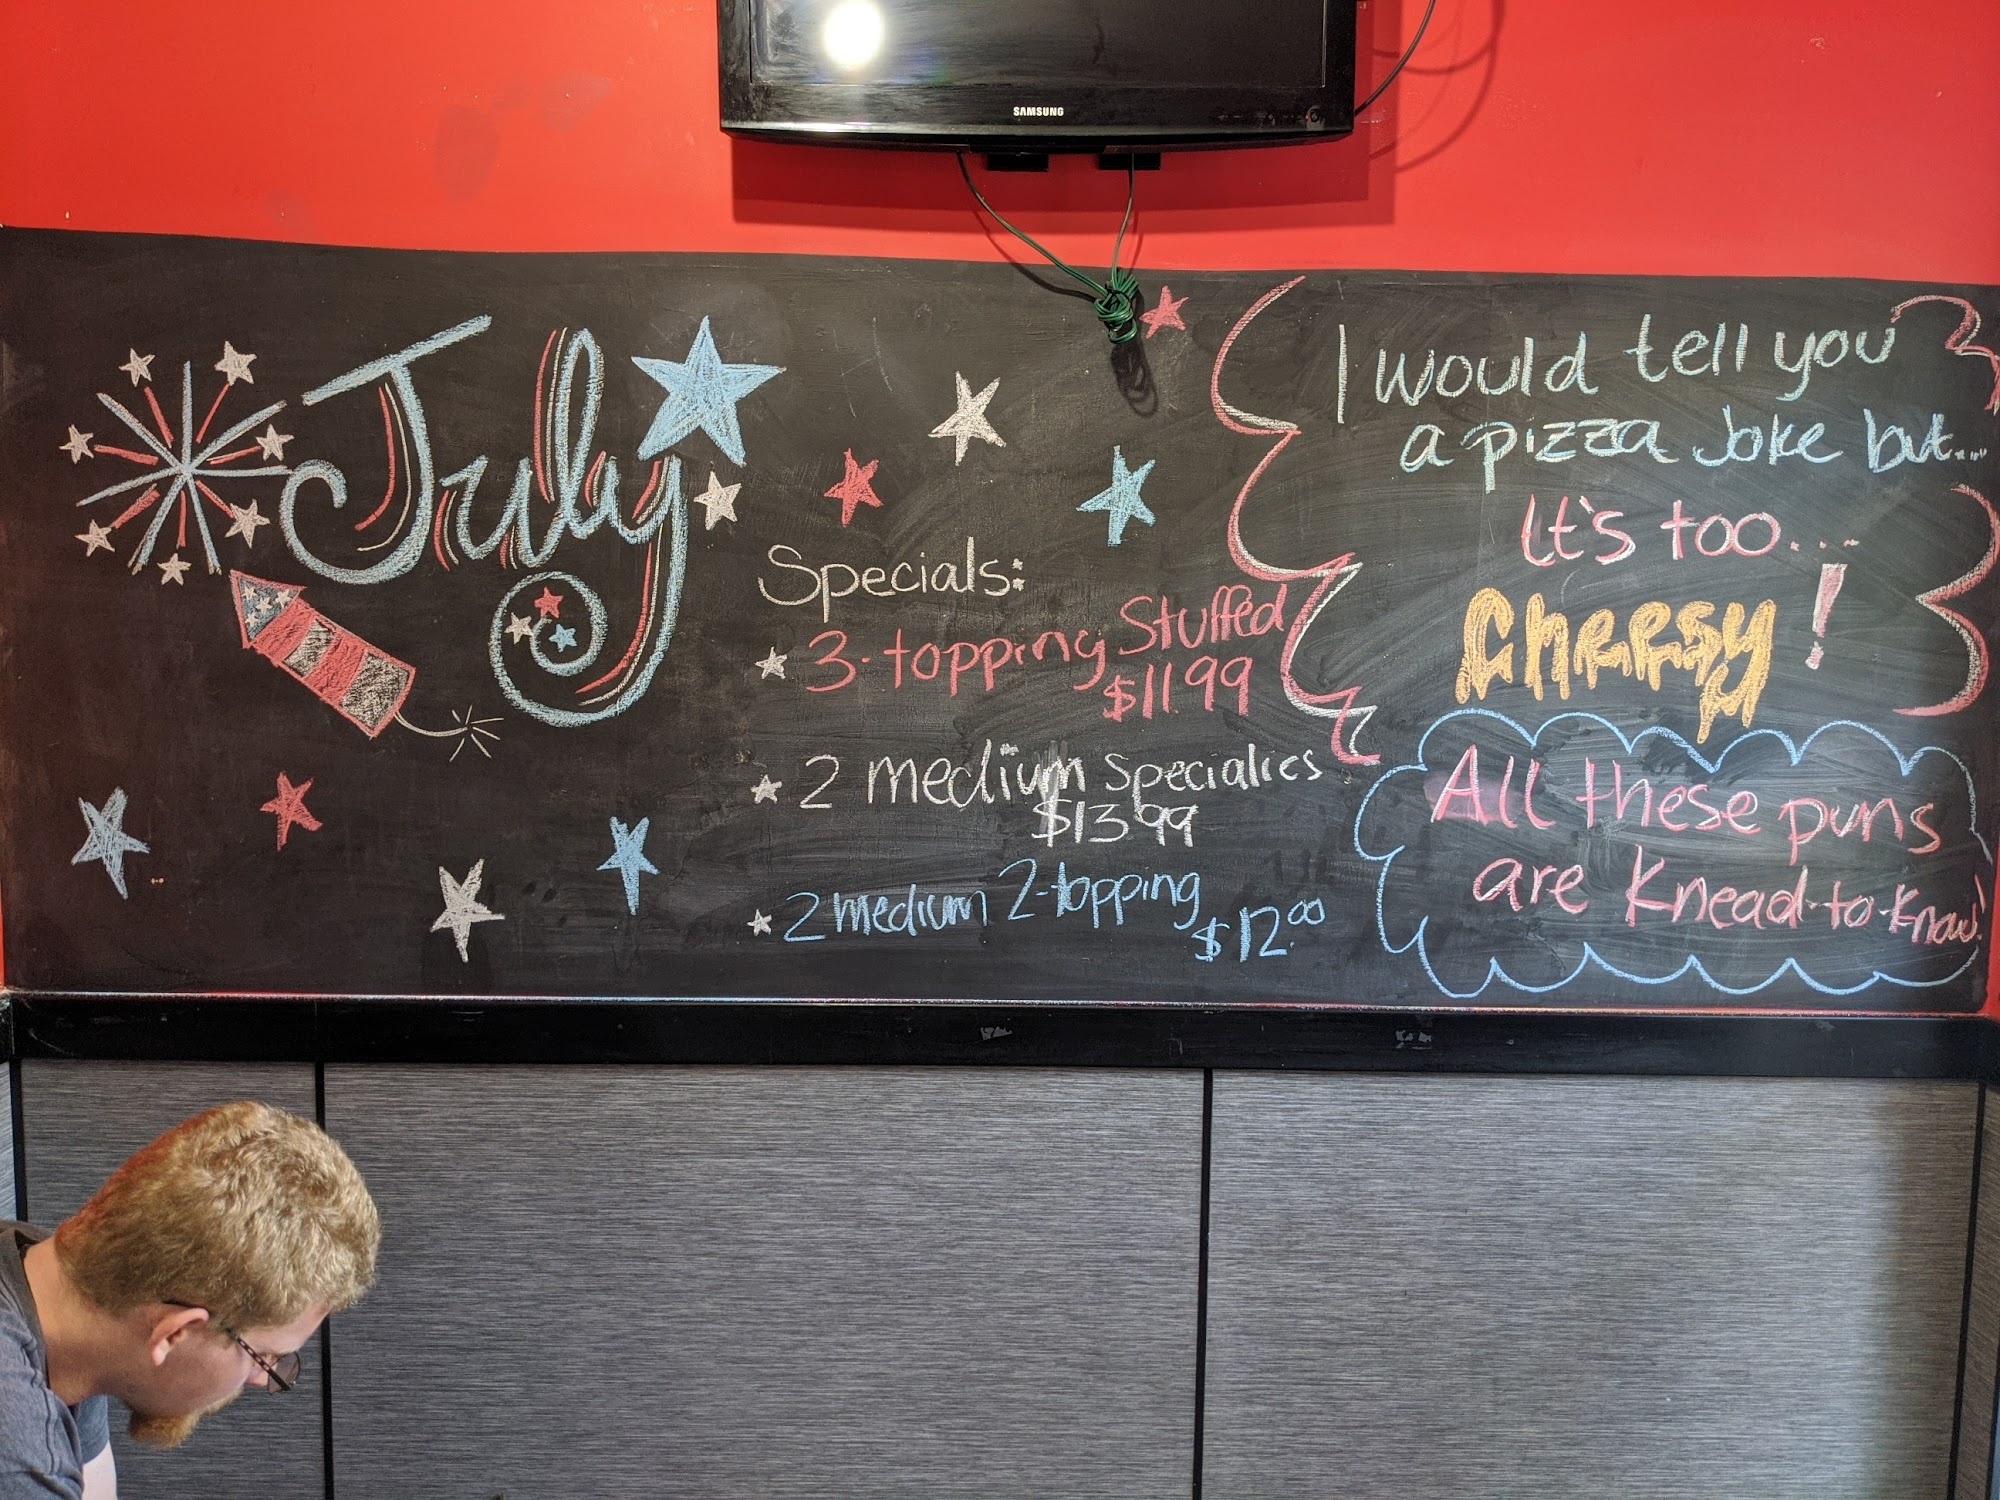 SAMSUNG
July
Specials:
3-topping Stuffed
$11.99
2 medium Specialies
$13.99
2 medium 2-topping
$12.00
I would tell you
a pizza Joke but...
It's too...
Cheesy!
All these puns
are Knead-to-Know!